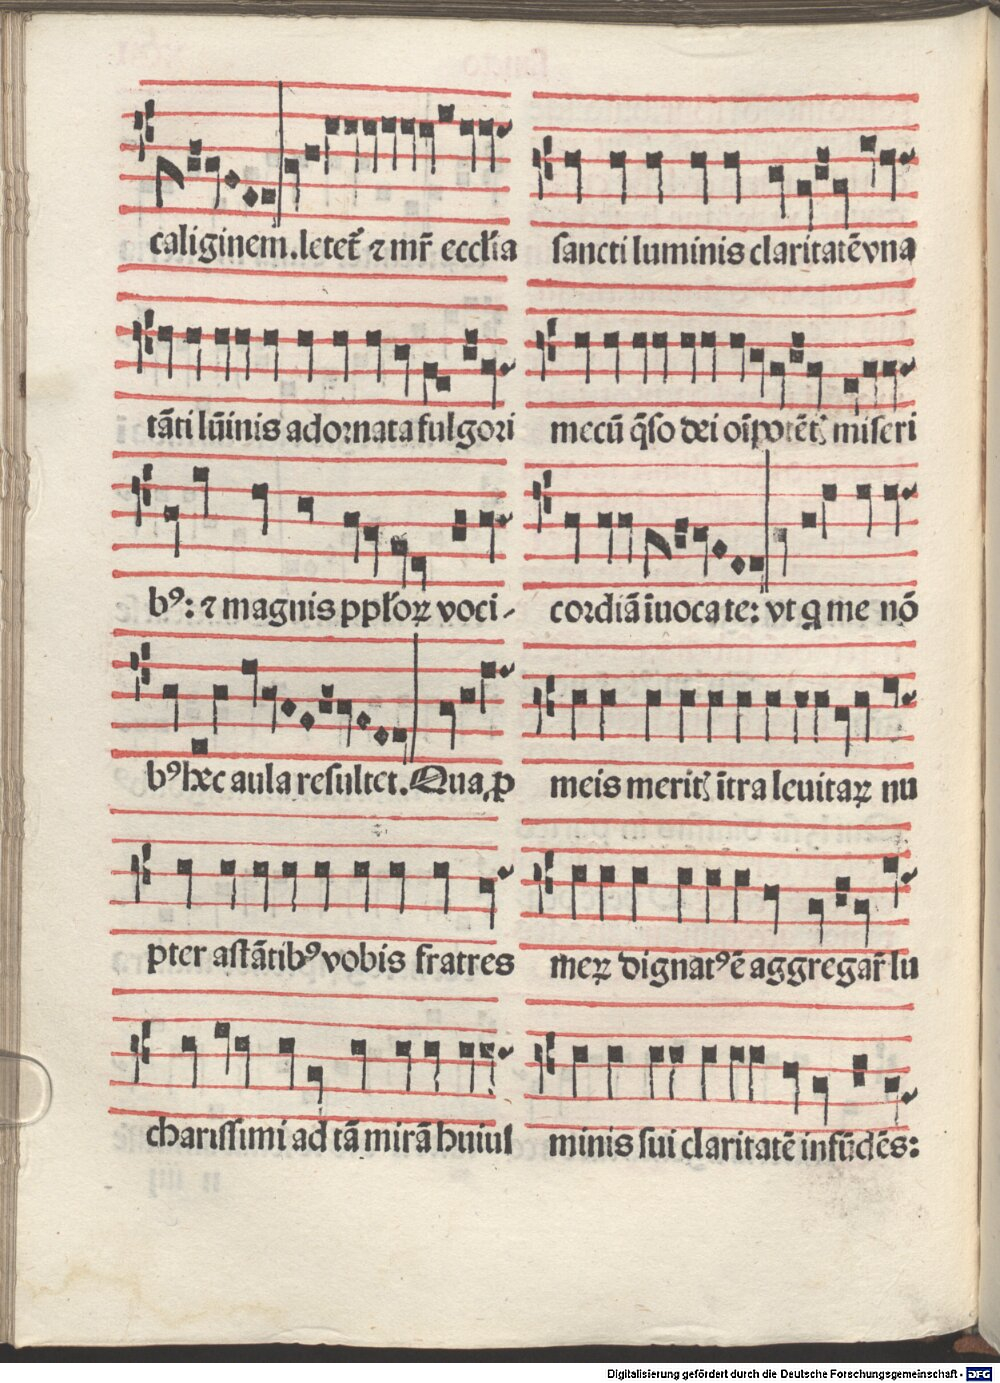 caliginem. letet̄ ⁊ mr̄ eccl'ia
tāti lūinis adornata fulgori
bꝰ: ⁊ magnis ppl'oꝝ voci-
bꝰ hec aula resultet. Qua ꝓ
pter astātibꝰ vobis fratres
charissimi ad tā mirā huius
sancti luminis claritatē vna
mecū q̄so dei oīpotētꝭ miseri
cordiā īuocate: vt q̇ me nō
meis meritꝭ ītra leuitaꝝ nu
meꝝ dignatꝰ ē aggregar̄ lu
minis sui claritatē infūdēs:
Digitalisierung gefördert durch die Deutsche Forschungsgemeinschaft - DFG